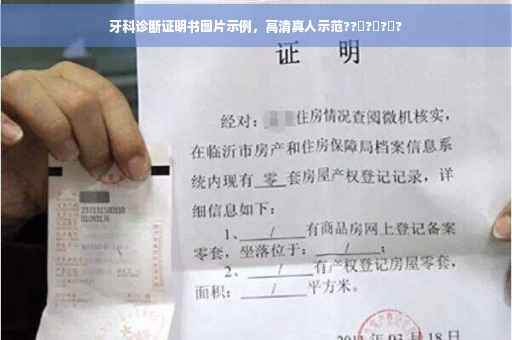 牙科诊断证明书图片示例，高清真人示范???????
证 明
经对：住房情况查阅微机核实，
在临沂市房产和住房保障局档案信息系
统内现有 零 套房屋产权登记记录，详
细信息如下：
1、 / 有商品房网上登记备案
零套，坐落位于： / ；
2、 / 有产权登记房屋零套，
面积： / 平方米。
03 月 18 日